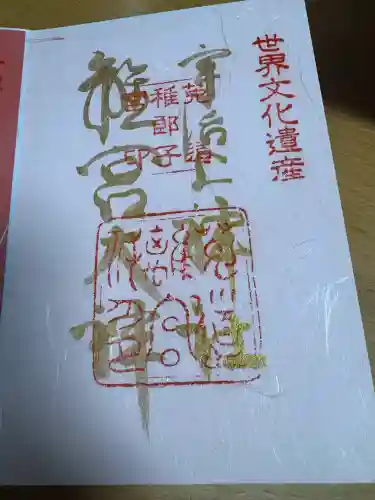 世界文化遺産
宇治上神社
菟道
稚郎子
印
離宮大神